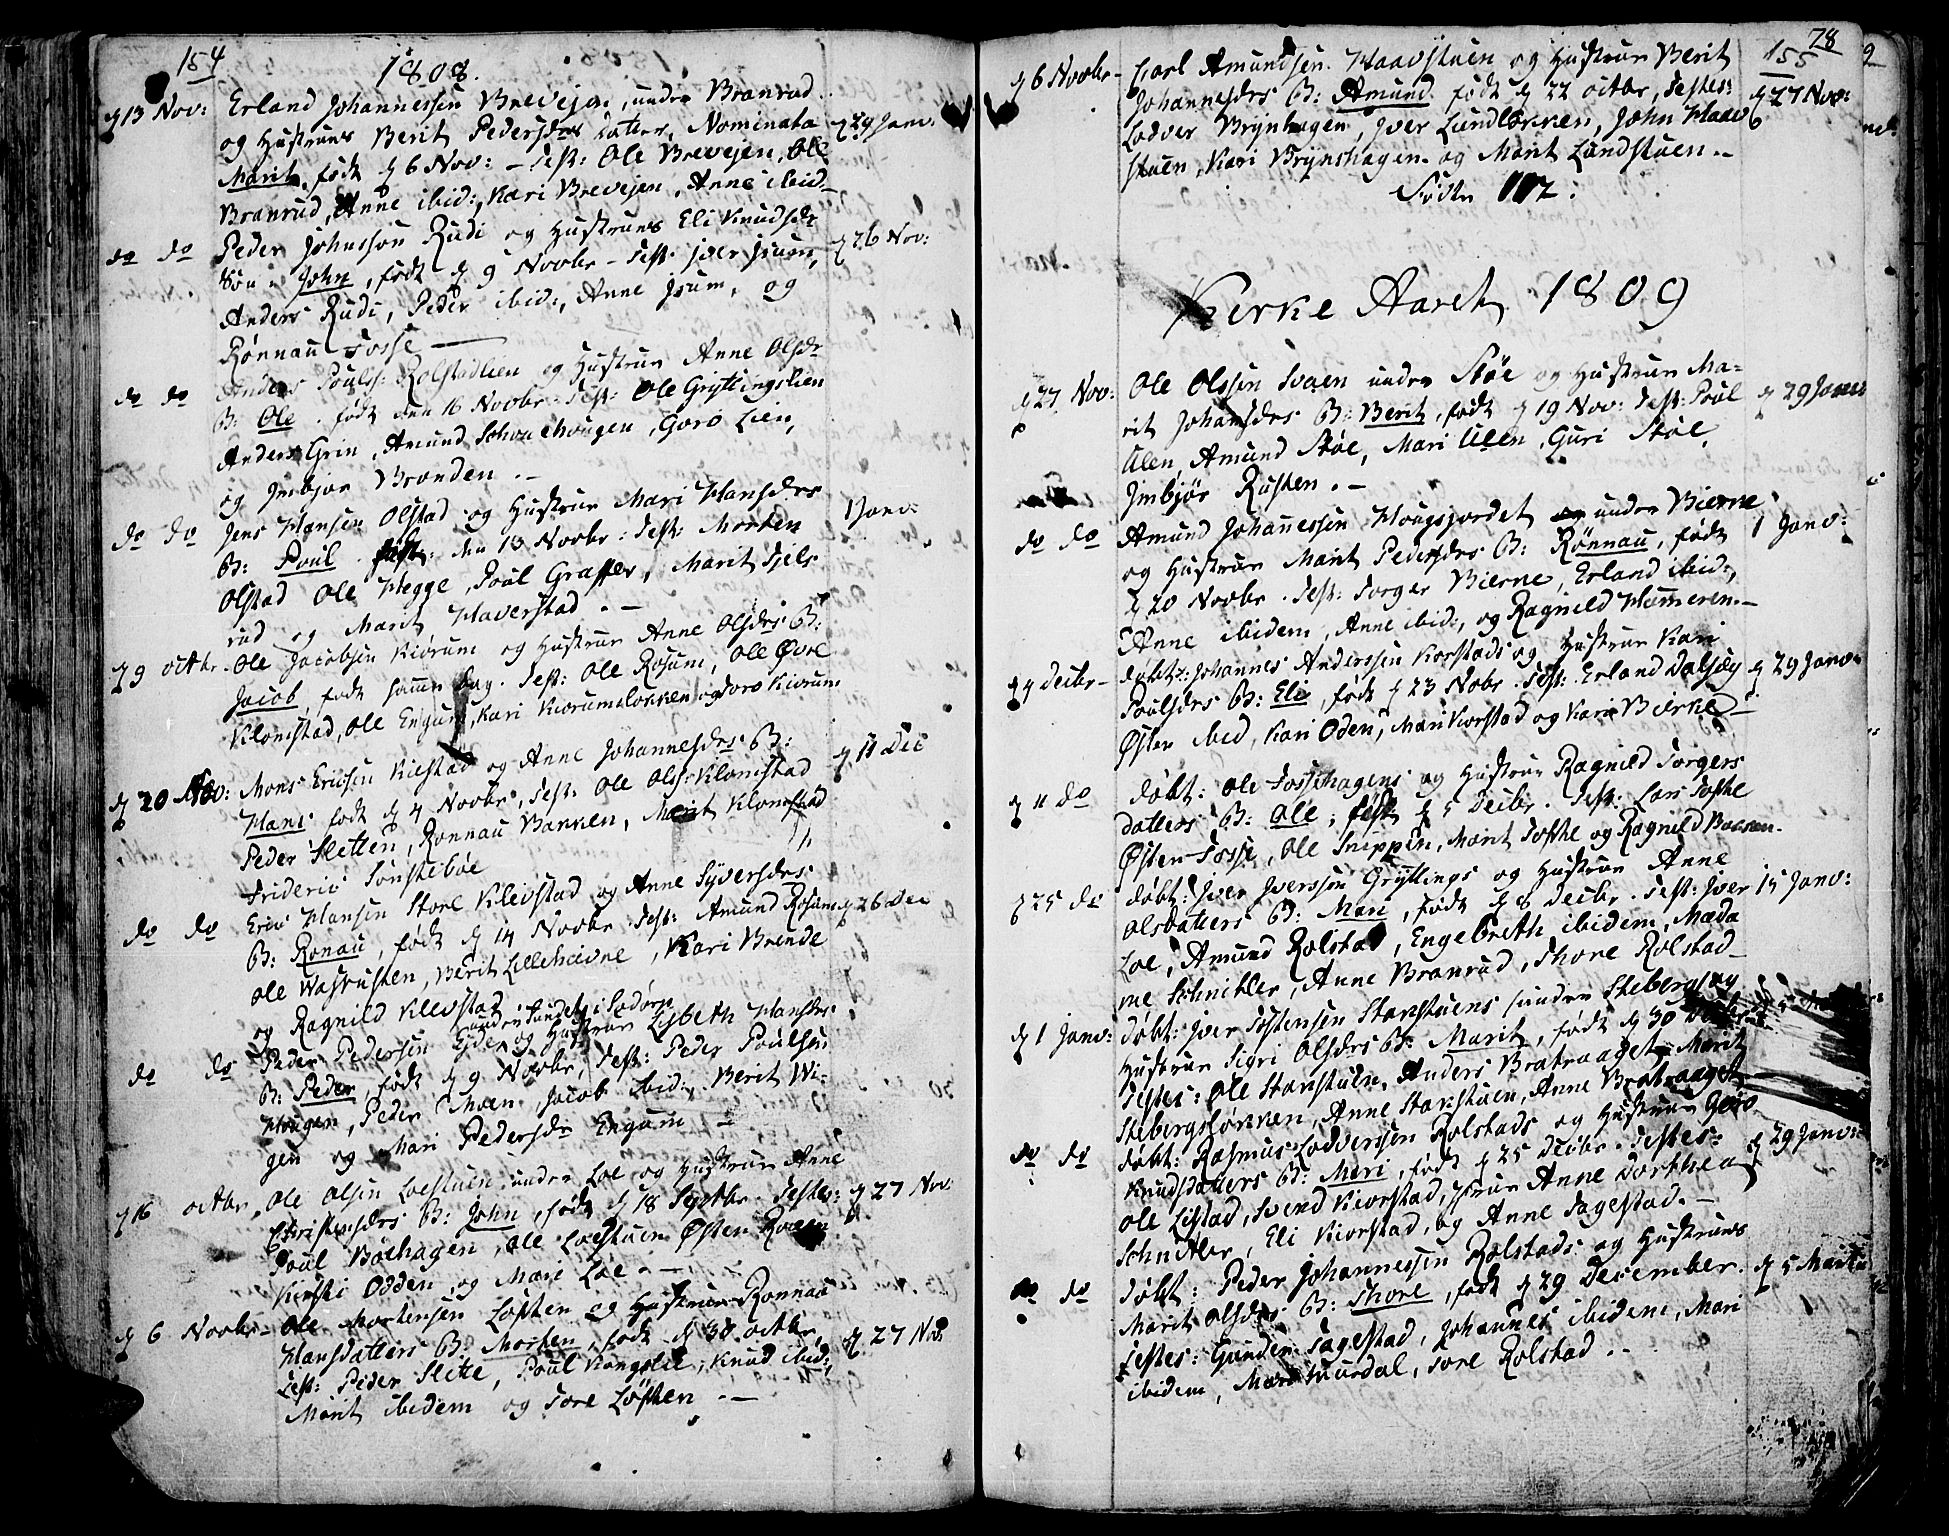 154
1808.
d 13 Nov: Erland Johannessen Brevejen, under Branrud
og Hustrues Berit Pedersdrs Datter, Nominata d 29 Janv.
Marit, født d 6 Nov: - Test: Ole Brevejen, Ole
Branrud, Anne ibid:, Kari Brevejen, Anne ibid
do do Peder Johnssøn Rudi og Hustrues Eli Knudsdr d 26 Nov:
Søn: John, født d 9 Novbr - Test: Iver Isum,
Anders Rudi, Peder ibid:, Anne Isum, og
Rønnau Fosse
do do Anders Pouls: Rolstadlien og Hustrue Anne Olsdr
B: Ole. født den 16 Novbr. Test: Ole Gryttingslien
Anders Grin, Amund Schouehougen, Goro Lien,
og Imbjør Brenden.
do do Jens Hansen Olstad og Hustrue Mari Hansdrs 1 Janv:
B: Poul. født: den 13 Novbr: Test: Morten
Olstad Ole Hegge, Poul Graffer, Marit Tjels
rud og Marit Haverstad.
d 9 octbr. Ole Jacobsen Kiørum og Hustrue Anne Olsdrs B:
Jacob, født samme Dag. Test: Ole Rosum, Ole Øvre
Klomstad, Ole Engum, Kari Kiorumsløkken og Goro Kiorum
d 20 Nov: Mons Ericsen Kilstad og Anne Johannesdrs B: d 11 Dec
Hans født d 4 Novbr, Test: Ole Ols: Klomstad
Peder Sletten, Rønnau Bakken, Marit Klomstad
Frideric Sønstebøe
do do Eric Hansen Store Klevstad og Anne Syversdrs
B: Ronau, født d 14 Novbr Test: Amund Rosum d 26 Dec
Ole Wasrusten, Berit Lillehievne, Kari Brende
og Ragnild Klevstad
under Sundet i Sødorp
do do Peder Pedersen Eide og Hustrue Lisbeth Hansdr
B: Peder, født d 9 Novbr, Test: Peder Poulsen
Hougen, Peder Moen Jacob ibid: Berit Wi-
gen og Mari Pedersdr Engum -
d 16 octbr. Ole Olsen Loestuen under Loe og Hustrue Anne
Christensdrs B: John, født d 18 Septbr. Testes: d 27 Nov:
Poul Bøehagen, Ole Loestuen Østen
Kirsti Odden og Mari Loe. -
d 6 Novbr - Ole Mortensen Løften og Hustrue Ronnau
Hansdatters B: Morten, født d 30 octbr, d 27 Nov
Test: Peder Slette, Poul Kongslie, Knud ibid:,
Marit ibidem og Tore Løften -
78
155
d 6 Novbr - Carl Amundsen Haavstuen og Hustrue Berit
Johannesdrs B: Amund født d 22 octbr, Testes: d 27 Nov:
Lodver Brynhagen, Iver Lundbekken, John Haav
stuen, Kari Brynshagen og Marit Lundstuen.
Fødte 112:
Kirke Aaret 1809
d 27 Nov: Ole Olssen Svaen under Støe og Hustrue Ma-
rit Johansdrs B: Berit, født d 19 Nov: Test: Poul d 29 Janv
Ulen, Amund Støe, Mari Ulen, Guri Støe,
Imbjør Rusten. -
do do Amund Johannessen Hougsjordet under Bierne 1 Janv:
og Hustrue Marit Pedersdrs B: Rønnau, født
d 20 Novbr. Test: Torger Bierne, Erland ibid:,
Anne ibidem, Anne ibid:, og Ragnild Hammeren. -
d 4 Decbr - døbt: Johannes Anderssen Korstads og Hustrue Kari
Poulsdrs B: Eli, født d 23 Nobr. Test: Erland Dalseg d 29 Janv:
Østen ibid, Kari Oden, Mari Korstad og Kari Bierke -
d 11 do døbt: Ole Fossehagens og Hustrue Ragnild Torgers
datters B: Ole, født d 5 Decbr. Test: Lars Tofte
Østen Fosse, Ole Snippen, Marit Tofthe og Ragnild Baksen.
d 25 do døbt: Iver Iverssøn Gryttings og Hustrue Anne
Olsdatters B: Mari, født d 8 Decbr. Test: Iver 15 Janv:
Loe, Amund Rolstad, Engebreth ibidem, Mada
me Schnitler, Anne Branrud, Thore Rolstad -
d 1 Janv: døbt: Iver Tostensen Starstuens under Steberg og
Hustrue Sigri Olsdrs B: Marit, født d 30 Decbr
Testes: Ole Starstuen, Anders Bratraaget, Marit
Stebergsløkken, Anne Starstuen, Anne Bratraaget
do do døbt: Rasmus Lodverssen Rolstads og Hustrue Goro
Knudsdatters B: Mari, født d 25 Decbr. Testes: d 29 Janv:
Ole Listad, Svend Kiorstad, Frue Anne Dorthea
Schnitler, Eli Kiorstad, og Anne Sagestad. -
do do døbt: Peder Johannessen Rolstads og Hustrues
Marit Olsdrs B: Thore, født d 29 December. d 5 Marti
Testes: Gunder Sagestad, Johannes ibidem, Mari
ibidem, Mari Murdal, Tore Rolstad. -